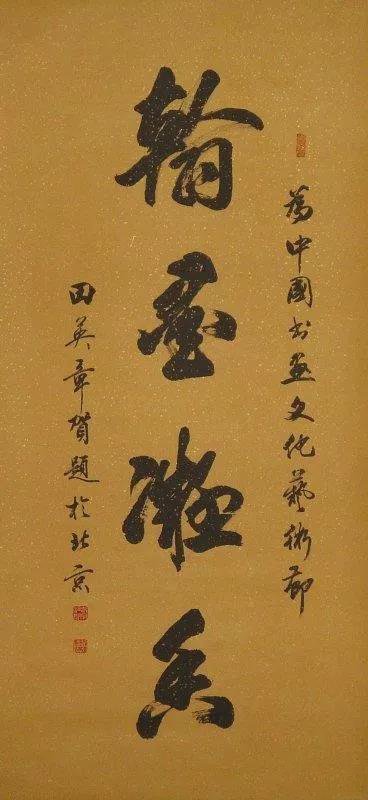 為中國書畫文化藝術節
翰墨凝香
田英章賀題於北京